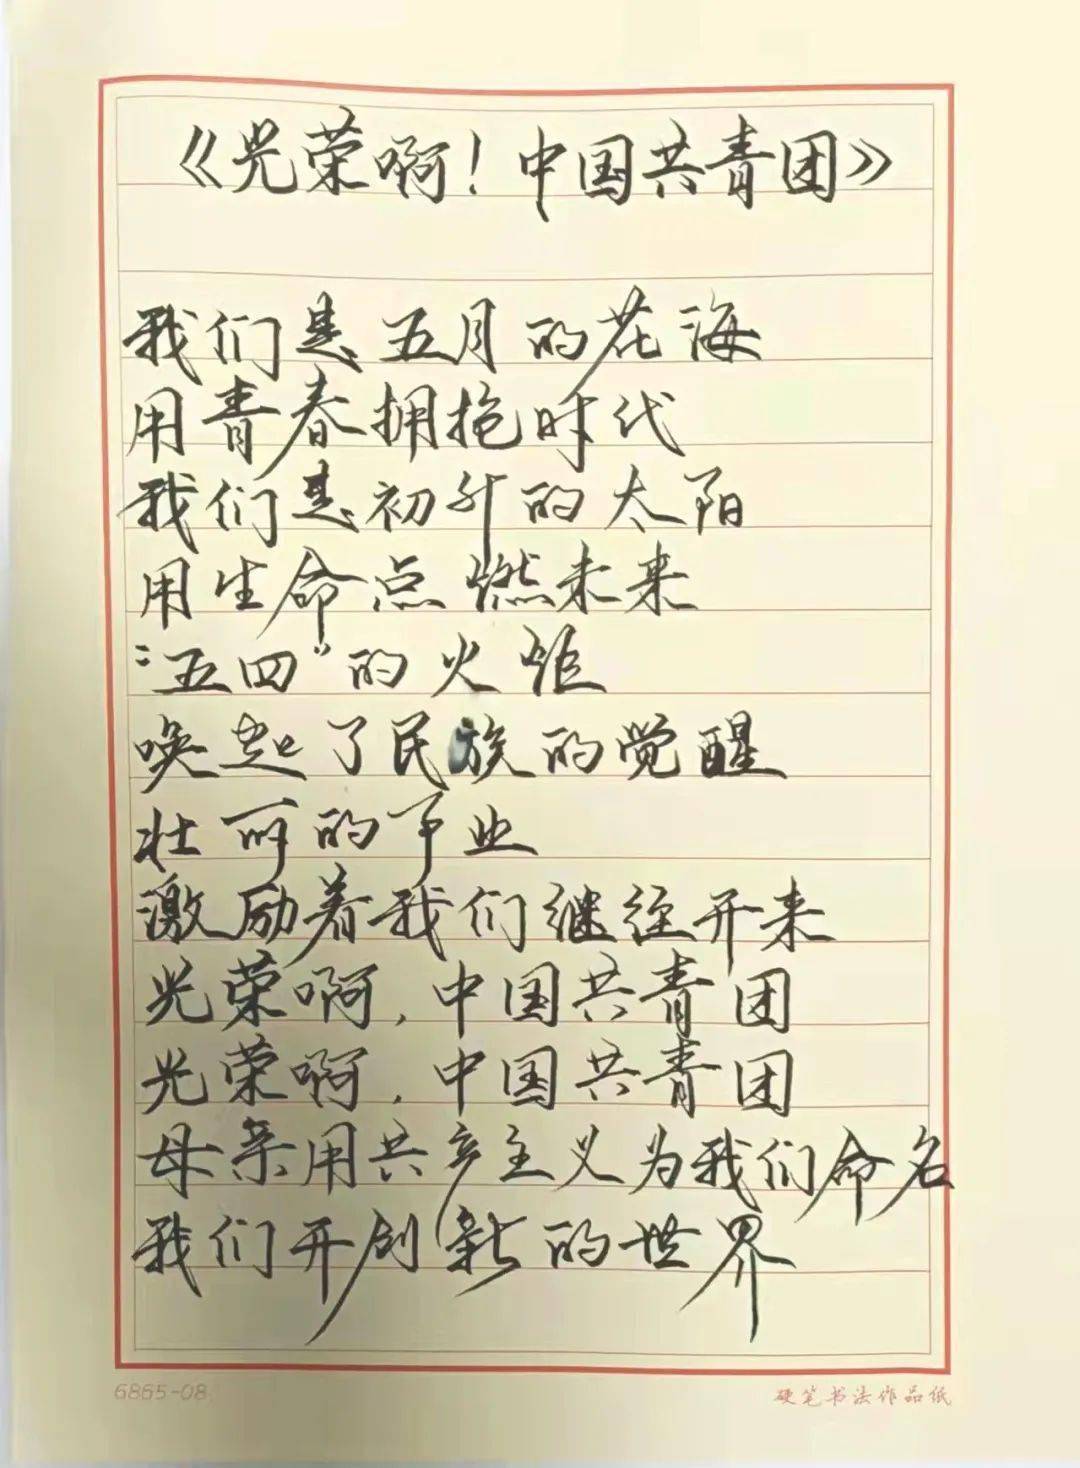 《光荣啊！中国共青团》
我们是五月的花海
用青春拥抱时代
我们是初升的太阳
用生命点燃未来
“五四”的火炬
唤起了民族的觉醒
壮丽的事业
激励着我们继往开来
光荣啊，中国共青团
光荣啊，中国共青团
母亲用共产主义为我们命名
我们开创新的世界
6865-08
硬笔书法作品纸